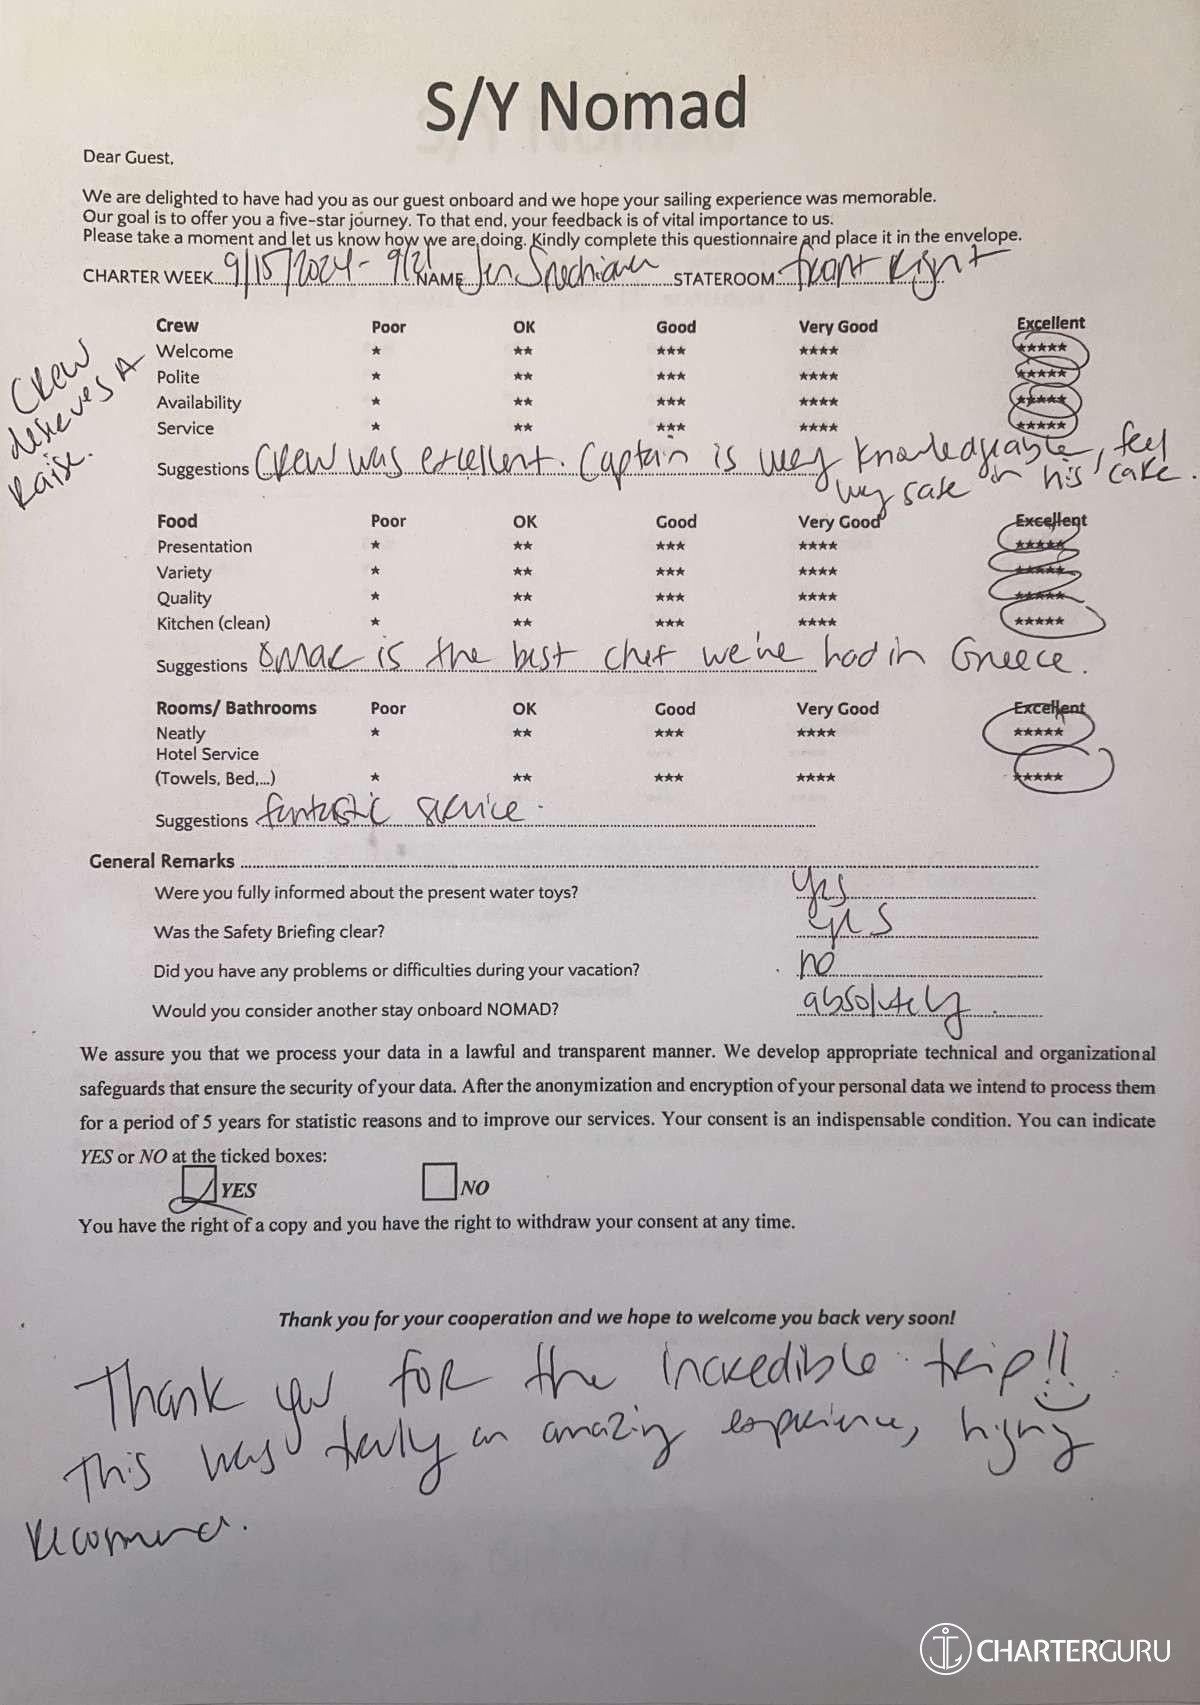 S/Y Nomad
Dear Guest,
We are delighted to have had you as our guest onboard and we hope your sailing experience was memorable.
Our goal is to offer you a five-star journey. To that end, your feedback is of vital importance to us.
Please take a moment and let us know how we are doing. Kindly complete this questionnaire and place it in the envelope.
CHARTER WEEK 9/15/2024 - 9/21 NAME Jen STATEROOM front Right
Crew Poor OK Good Very Good Excellent
Welcome ★ ★★ ★★★ ★★★★ ★★★★★
Polite ★ ★★ ★★★ ★★★★ ★★★★★
Availability ★ ★★ ★★★ ★★★★ ★★★★★
Service ★ ★★ ★★★ ★★★★ ★★★★★
Crew
deserves A
raise.
Suggestions Crew was excellent. Captain is very knowledgeable, feel
very safe in his care.
Food Poor OK Good Very Good Excellent
Presentation ★ ★★ ★★★ ★★★★ ★★★★★
Variety ★ ★★ ★★★ ★★★★ ★★★★★
Quality ★ ★★ ★★★ ★★★★ ★★★★★
Kitchen (clean) ★ ★★ ★★★ ★★★★ ★★★★★
Suggestions Omac is the best chef we've had in Greece.
Rooms/ Bathrooms Poor OK Good Very Good Excellent
Neatly ★ ★★ ★★★ ★★★★ ★★★★★
Hotel Service
(Towels, Bed,...) ★ ★★ ★★★ ★★★★ ★★★★★
Suggestions fantastic service.
General Remarks
Were you fully informed about the present water toys? yes
Was the Safety Briefing clear? yes
Did you have any problems or difficulties during your vacation? no
Would you consider another stay onboard NOMAD? absolutely.
We assure you that we process your data in a lawful and transparent manner. We develop appropriate technical and organizational
safeguards that ensure the security of your data. After the anonymization and encryption of your personal data we intend to process them
for a period of 5 years for statistic reasons and to improve our services. Your consent is an indispensable condition. You can indicate
YES or NO at the ticked boxes:
YES NO
You have the right of a copy and you have the right to withdraw your consent at any time.
Thank you for your cooperation and we hope to welcome you back very soon!
Thank you for the incredible trip!!
This was truly an amazing experience, highly
recommend.
CHARTERGURU